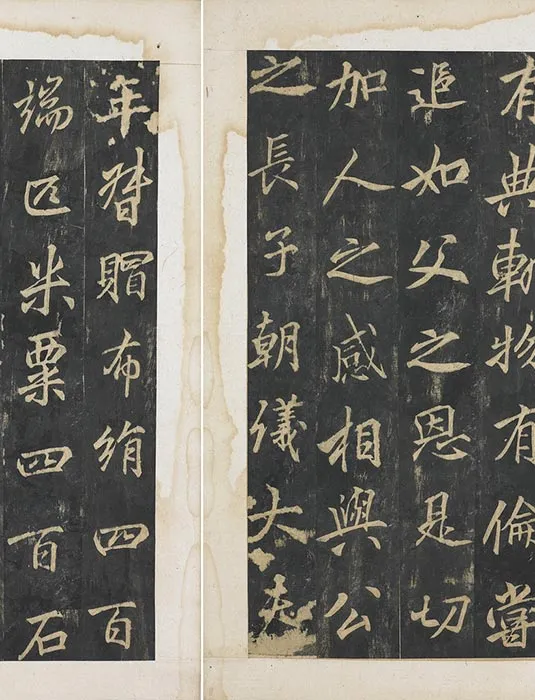 有典軌物有倫嘗
追如父之恩是切
加人之感相與公
之長子朝儀大夫
年督賵布絹四百
端匹米粟四百石